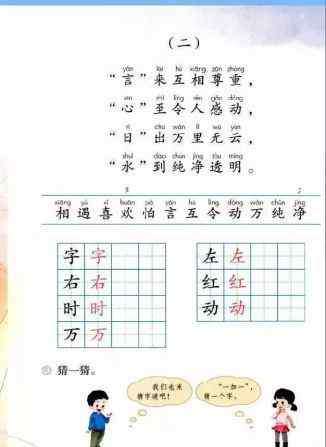 （二）
yán lái hù xiāng zūn zhòng
“言”来互相尊重，
xīn zhì lìng rén gǎn dòng
“心”至令人感动，
rì chū wàn lǐ wú yún
“日”出万里无云，
shuǐ dào chún jìng tòu míng
“水”到纯净透明。
xiāng yù xǐ huān pà yán hù lìng dòng wàn chún jìng
相遇喜欢怕言互令动万纯净
字字 左左
右右 红红
时时 动动
万万
猜一猜。
我们也来
猜字谜吧！
“一加一”，
猜一个字。